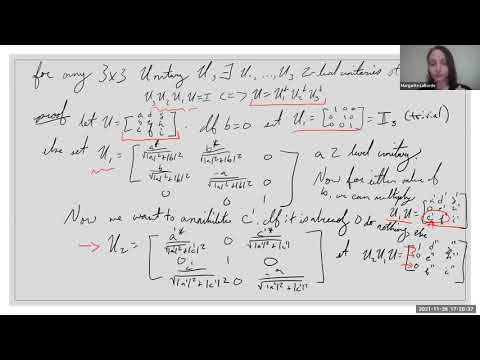 for any 3x3 Unitary U, ∃ U₁, ..., U₃ 2-level unitaries st
U₃U₂U₁U = I <=> U = U₁†U₂†U₃†
proof let U = [a d g; b e h; c f i]. If b=0 set U₁ = [1 0 0; 0 1 0; 0 0 1] = I₃ (trivial)
else set U₁ = [a*/√(|a|²+|b|²) b*/√(|a|²+|b|²) 0; b/√(|a|²+|b|²) -a/√(|a|²+|b|²) 0; 0 0 1] a 2 level unitary.
Now for either value of
b, we can multiply
U₁U = [a' d' g'; 0 e' h'; c' f' i']
Now we want to annihilate c'. If it is already 0 do nothing, else
U₂ = [a'*/√(|a'|²+|c'|²) 0 c'*/√(|a'|²+|c'|²); 0 1 0; c'/√(|a'|²+|c'|²) 0 -a'/√(|a'|²+|c'|²)] st U₂U₁U = [1 d" g"; 0 e" h"; 0 f" i"]
Margarite LaBorde
2021-11-26 17:20:37